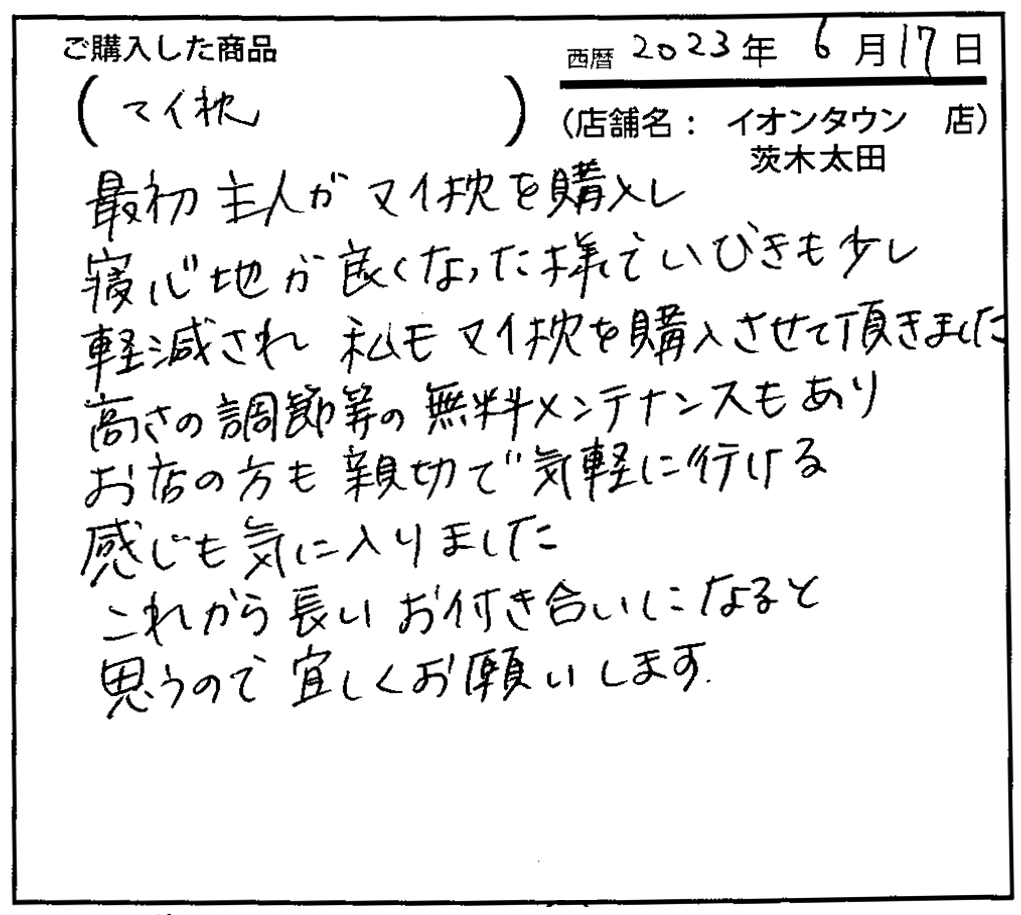 ご購入した商品
(マイ枕)
西暦 2023年 6月17日
(店舗名: イオンタウン 店)
茨木太田
最初 主人が マイ枕を購入し
寝心地が良くなった様でいびきも少し
軽減され 私も マイ枕を購入させて頂きました
高さの調節等の無料メンテナンスもあり
お店の方も親切で気軽に行ける
感じも気に入りました
これから長いお付き合いになると
思うので宜しくお願いします.